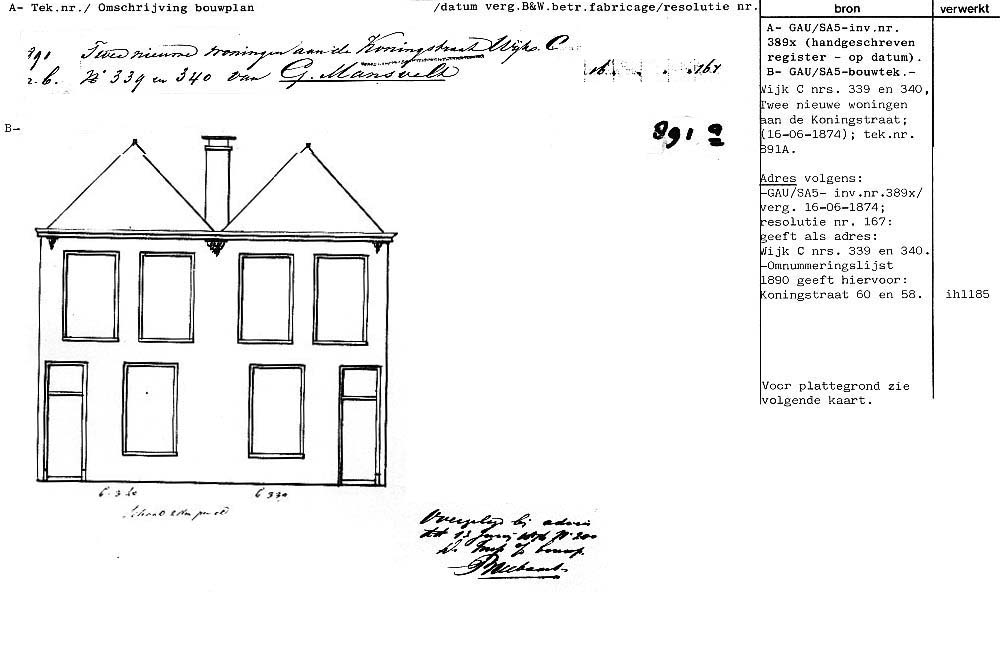 A- Tek.nr./ Omschrijving bouwplan /datum verg.B&W.betr.fabricage/resolutie nr.
bron
verwerkt
891 Twee nieuwe woningen aan de Koningstraat Wijk C
No 339 en 340 van G. Mansvelt
16. 167
B-
891 a
A- GAU/SA5-inv.nr.
389x (handgeschreven
register - op datum).
B- GAU/SA5-bouwtek.-
Wijk C nrs. 339 en 340,
Twee nieuwe woningen
aan de Koningstraat;
(16-06-1874); tek.nr.
891A.
Adres volgens:
-GAU/SA5- inv.nr.389x/
verg. 16-06-1874;
resolutie nr. 167:
geeft als adres:
Wijk C nrs. 339 en 340.
-Omnummeringslijst
1890 geeft hiervoor:
Koningstraat 60 en 58.
ih1185
Voor plattegrond zie
volgende kaart.
C 340
C 339
Schaal
Overgelegd bij advies